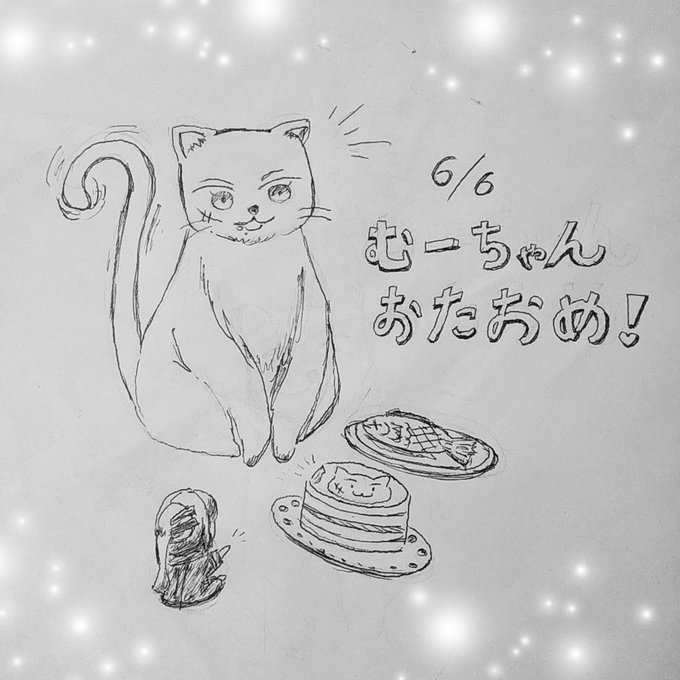 6/6
むーちゃん
おたおめ!